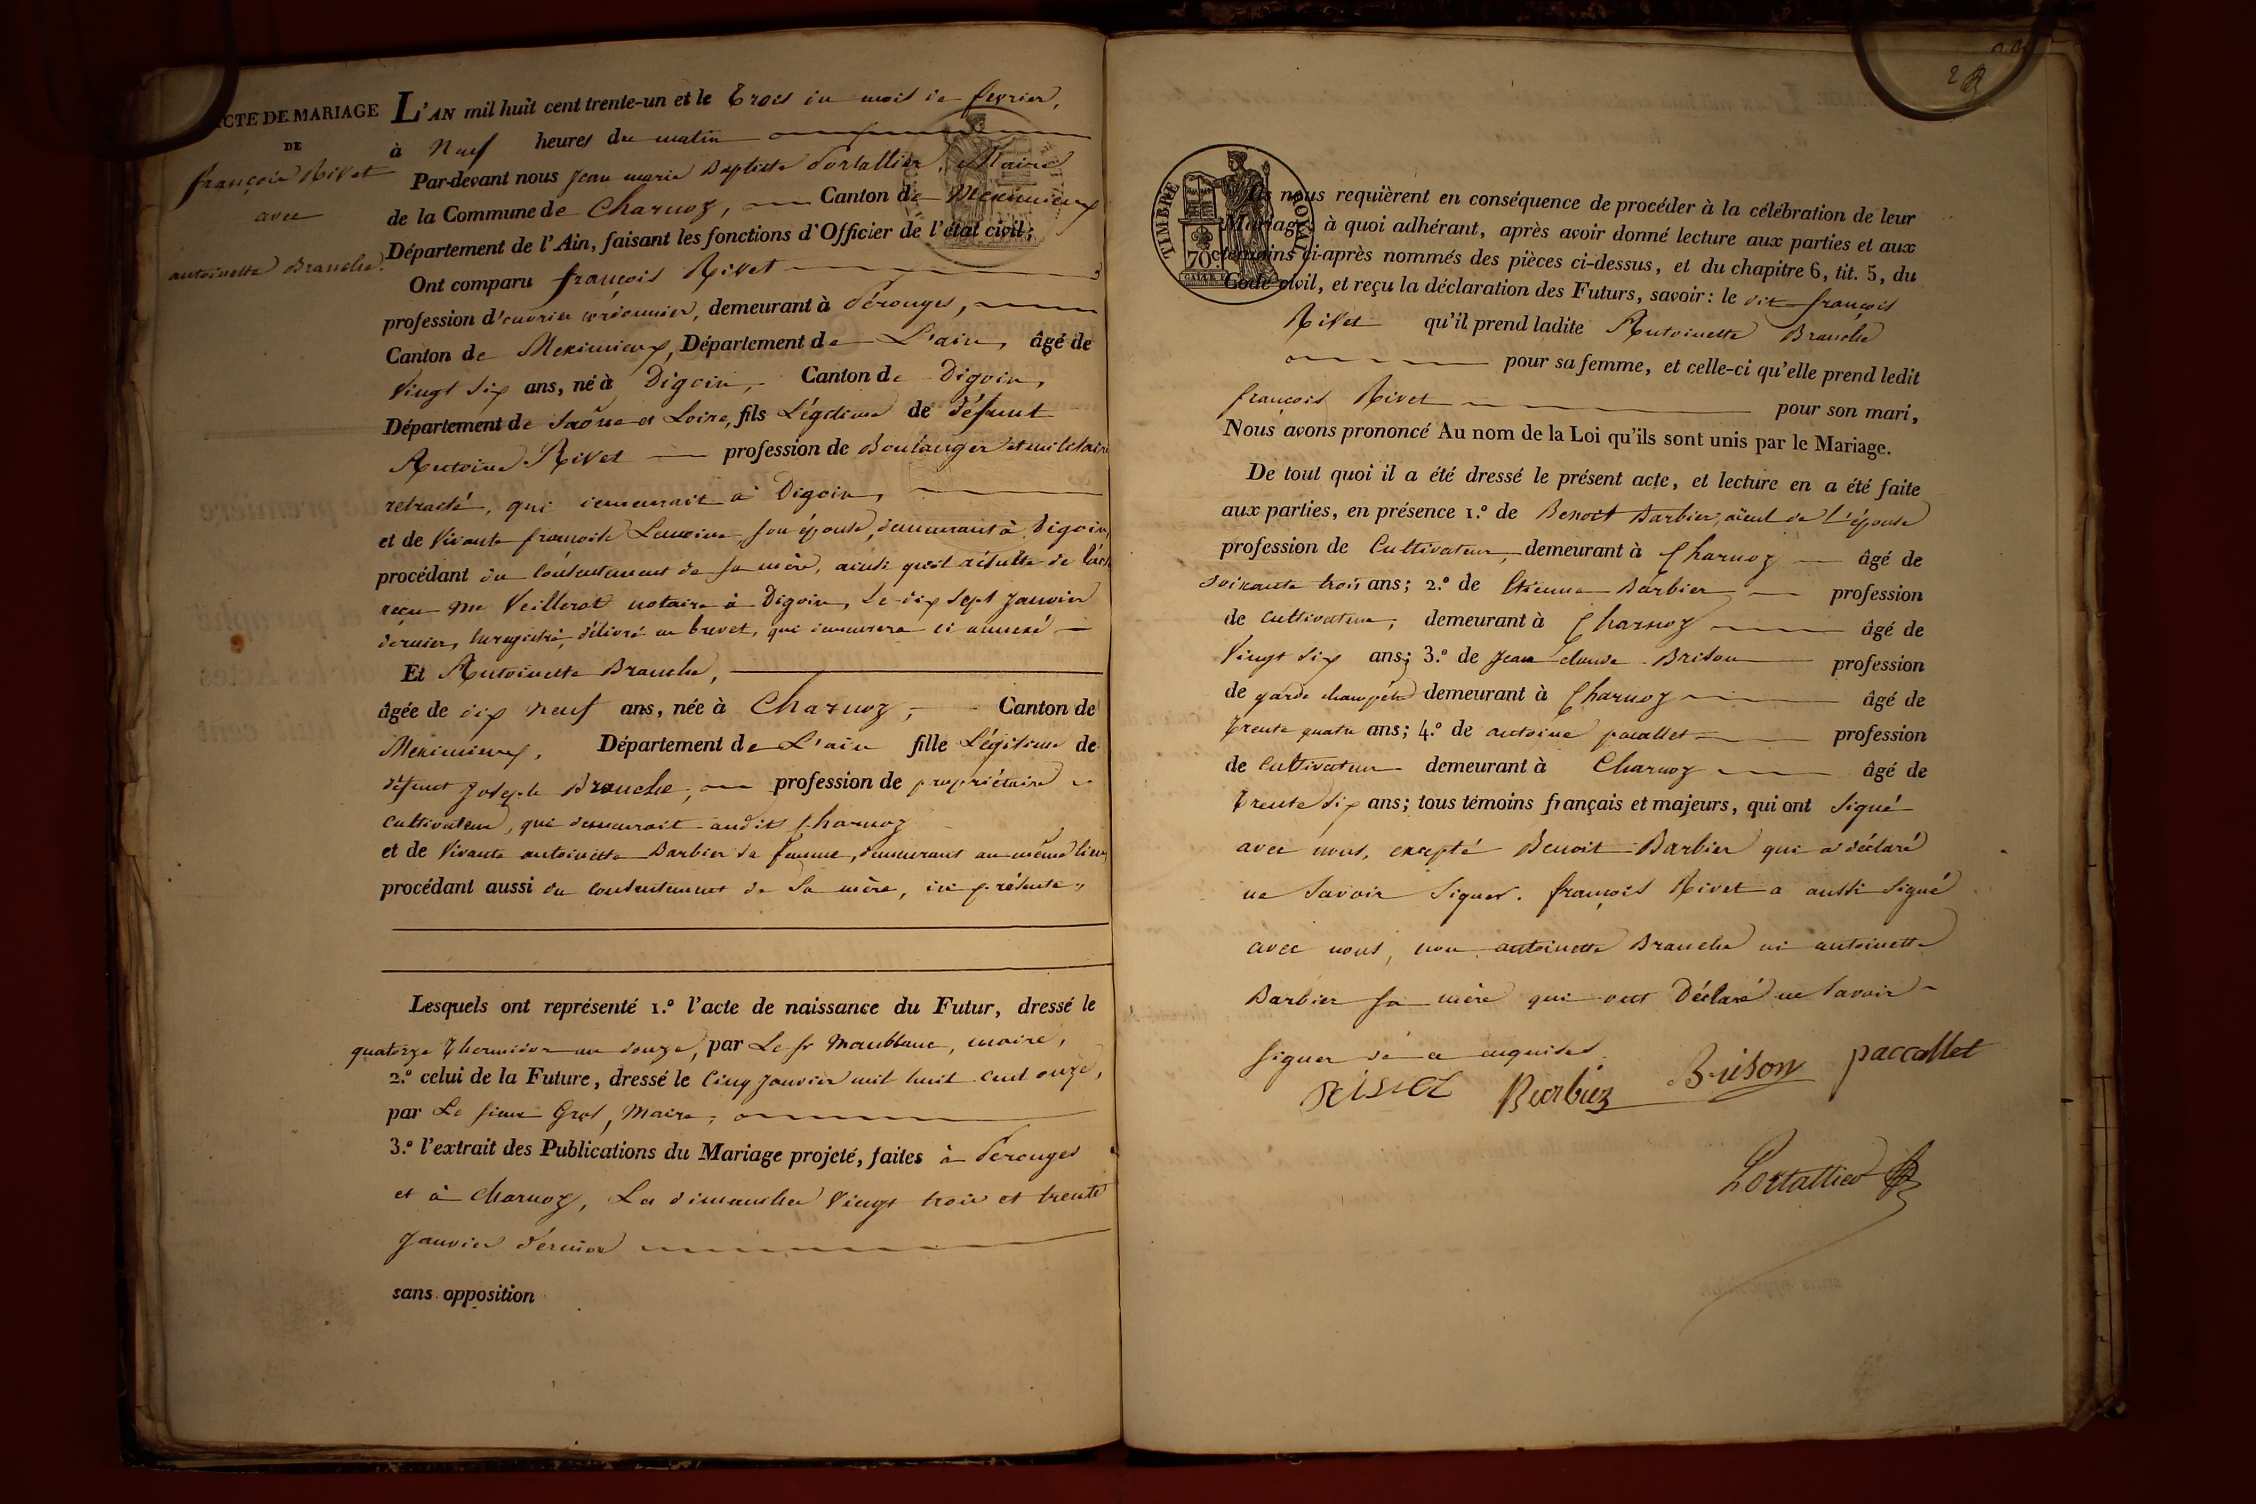 ACTE DE MARIAGE
DE
françois Rivet
avec
antoinette Branche.
L'AN mil huit cent trente-un et le Trois du mois de fevrier,
à Neuf heures du matin
Par-devant nous Jean marie Baptiste Portallier, Maire
de la Commune de Charnoz, Canton de Meximieux
Département de l'Ain, faisant les fonctions d'Officier de l'état civil;
Ont comparu françois Rivet
profession d'ouvrier cordonnier, demeurant à Pérouges,
Canton de Meximieux, Département de L'ain, âgé de
Vingt six ans, né à Digoin, Canton de Digoin,
Département de Saône et Loire, fils Légitime de défunt
Antoine Rivet profession de Boulanger et militaire
retraité, qui demeurait à Digoin,
et de Vivante françoise son épouse, demeurant à Digoin,
procédant du Consentement de sa mère, ainsi qu'il résulte de l'acte
reçu Me Veillerot notaire à Digoin, Le dix sept Janvier
dernier, Enregistré, délivré en brevet, qui demeurera ci annexé
Et Antoinette Branche,
âgée de dix neuf ans, née à Charnoz, Canton de
Meximieux, Département de L'ain fille Légitime de
défunt Joseph Branche, profession de propriétaire
cultivateur, qui demeurait audit Charnoz
et de Vivante antoinette Barbier sa femme, demeurant au même lieu,
procédant aussi du consentement de Sa mère, ici présente,
Lesquels ont représenté 1.º l'acte de naissance du Futur, dressé le
quatorze Thermidor an douze, par Le Sr Maublanc, maire,
2.º celui de la Future, dressé le Cinq Janvier mil huit cent onze,
par Le sieur Gros, Maire,
3.º l'extrait des Publications du Mariage projeté, faites à Perouges
et à Charnoz, Les dimanches Vingt trois et trente
Janvier dernier
sans opposition
TIMBRE ROYAL
70c
Ils nous requièrent en conséquence de procéder à la célébration de leur
Mariage, à quoi adhérant, après avoir donné lecture aux parties et aux
témoins ci-après nommés des pièces ci-dessus, et du chapitre 6, tit. 5, du
Code civil, et reçu la déclaration des Futurs, savoir: le dit françois
Rivet qu'il prend ladite Antoinette Branche
pour sa femme, et celle-ci qu'elle prend ledit
françois Rivet pour son mari,
Nous avons prononcé Au nom de la Loi qu'ils sont unis par le Mariage.
De tout quoi il a été dressé le présent acte, et lecture en a été faite
aux parties, en présence 1.º de Benoit Barbier, aïeul de L'épouse
profession de Cultivateur, demeurant à Charnoz âgé de
soixante trois ans; 2.º de Etienne Barbier profession
de cultivateur, demeurant à Charnoz âgé de
Vingt six ans; 3.º de Jean claude Brison profession
de garde champêtre demeurant à Charnoz âgé de
Trente quatre ans; 4.º de antoine pacallet profession
de Cultivateur demeurant à Charnoz âgé de
Trente six ans; tous témoins français et majeurs, qui ont Signé
avec nous, excepté Benoit Barbier qui a déclaré
ne Savoir Signer. françois Rivet a aussi Signé
avec nous, non antoinette Branche ni antoinette
Barbier sa mère qui ont Déclaré ne Savoir
Signer de ce enquises.
Barbier Brison paccallet
Portallier